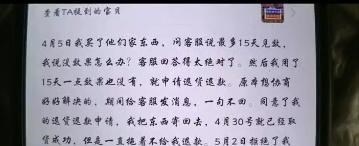 查看TA提到的宝贝
4月5日我买了他们家东西，问客服说最多15天见效，
我说没效果怎么办？客服回答得太绝对了。然后我用了
15天一点效果也没有，就申请退货退款。原本想协商
好好解决的，期间给客服发消息，一句不回。同意了我
的退货退款申请，我把东西寄回去，4月30号就已经取
货成功，但是一直拖着不给我退款。5月2日拒绝了我